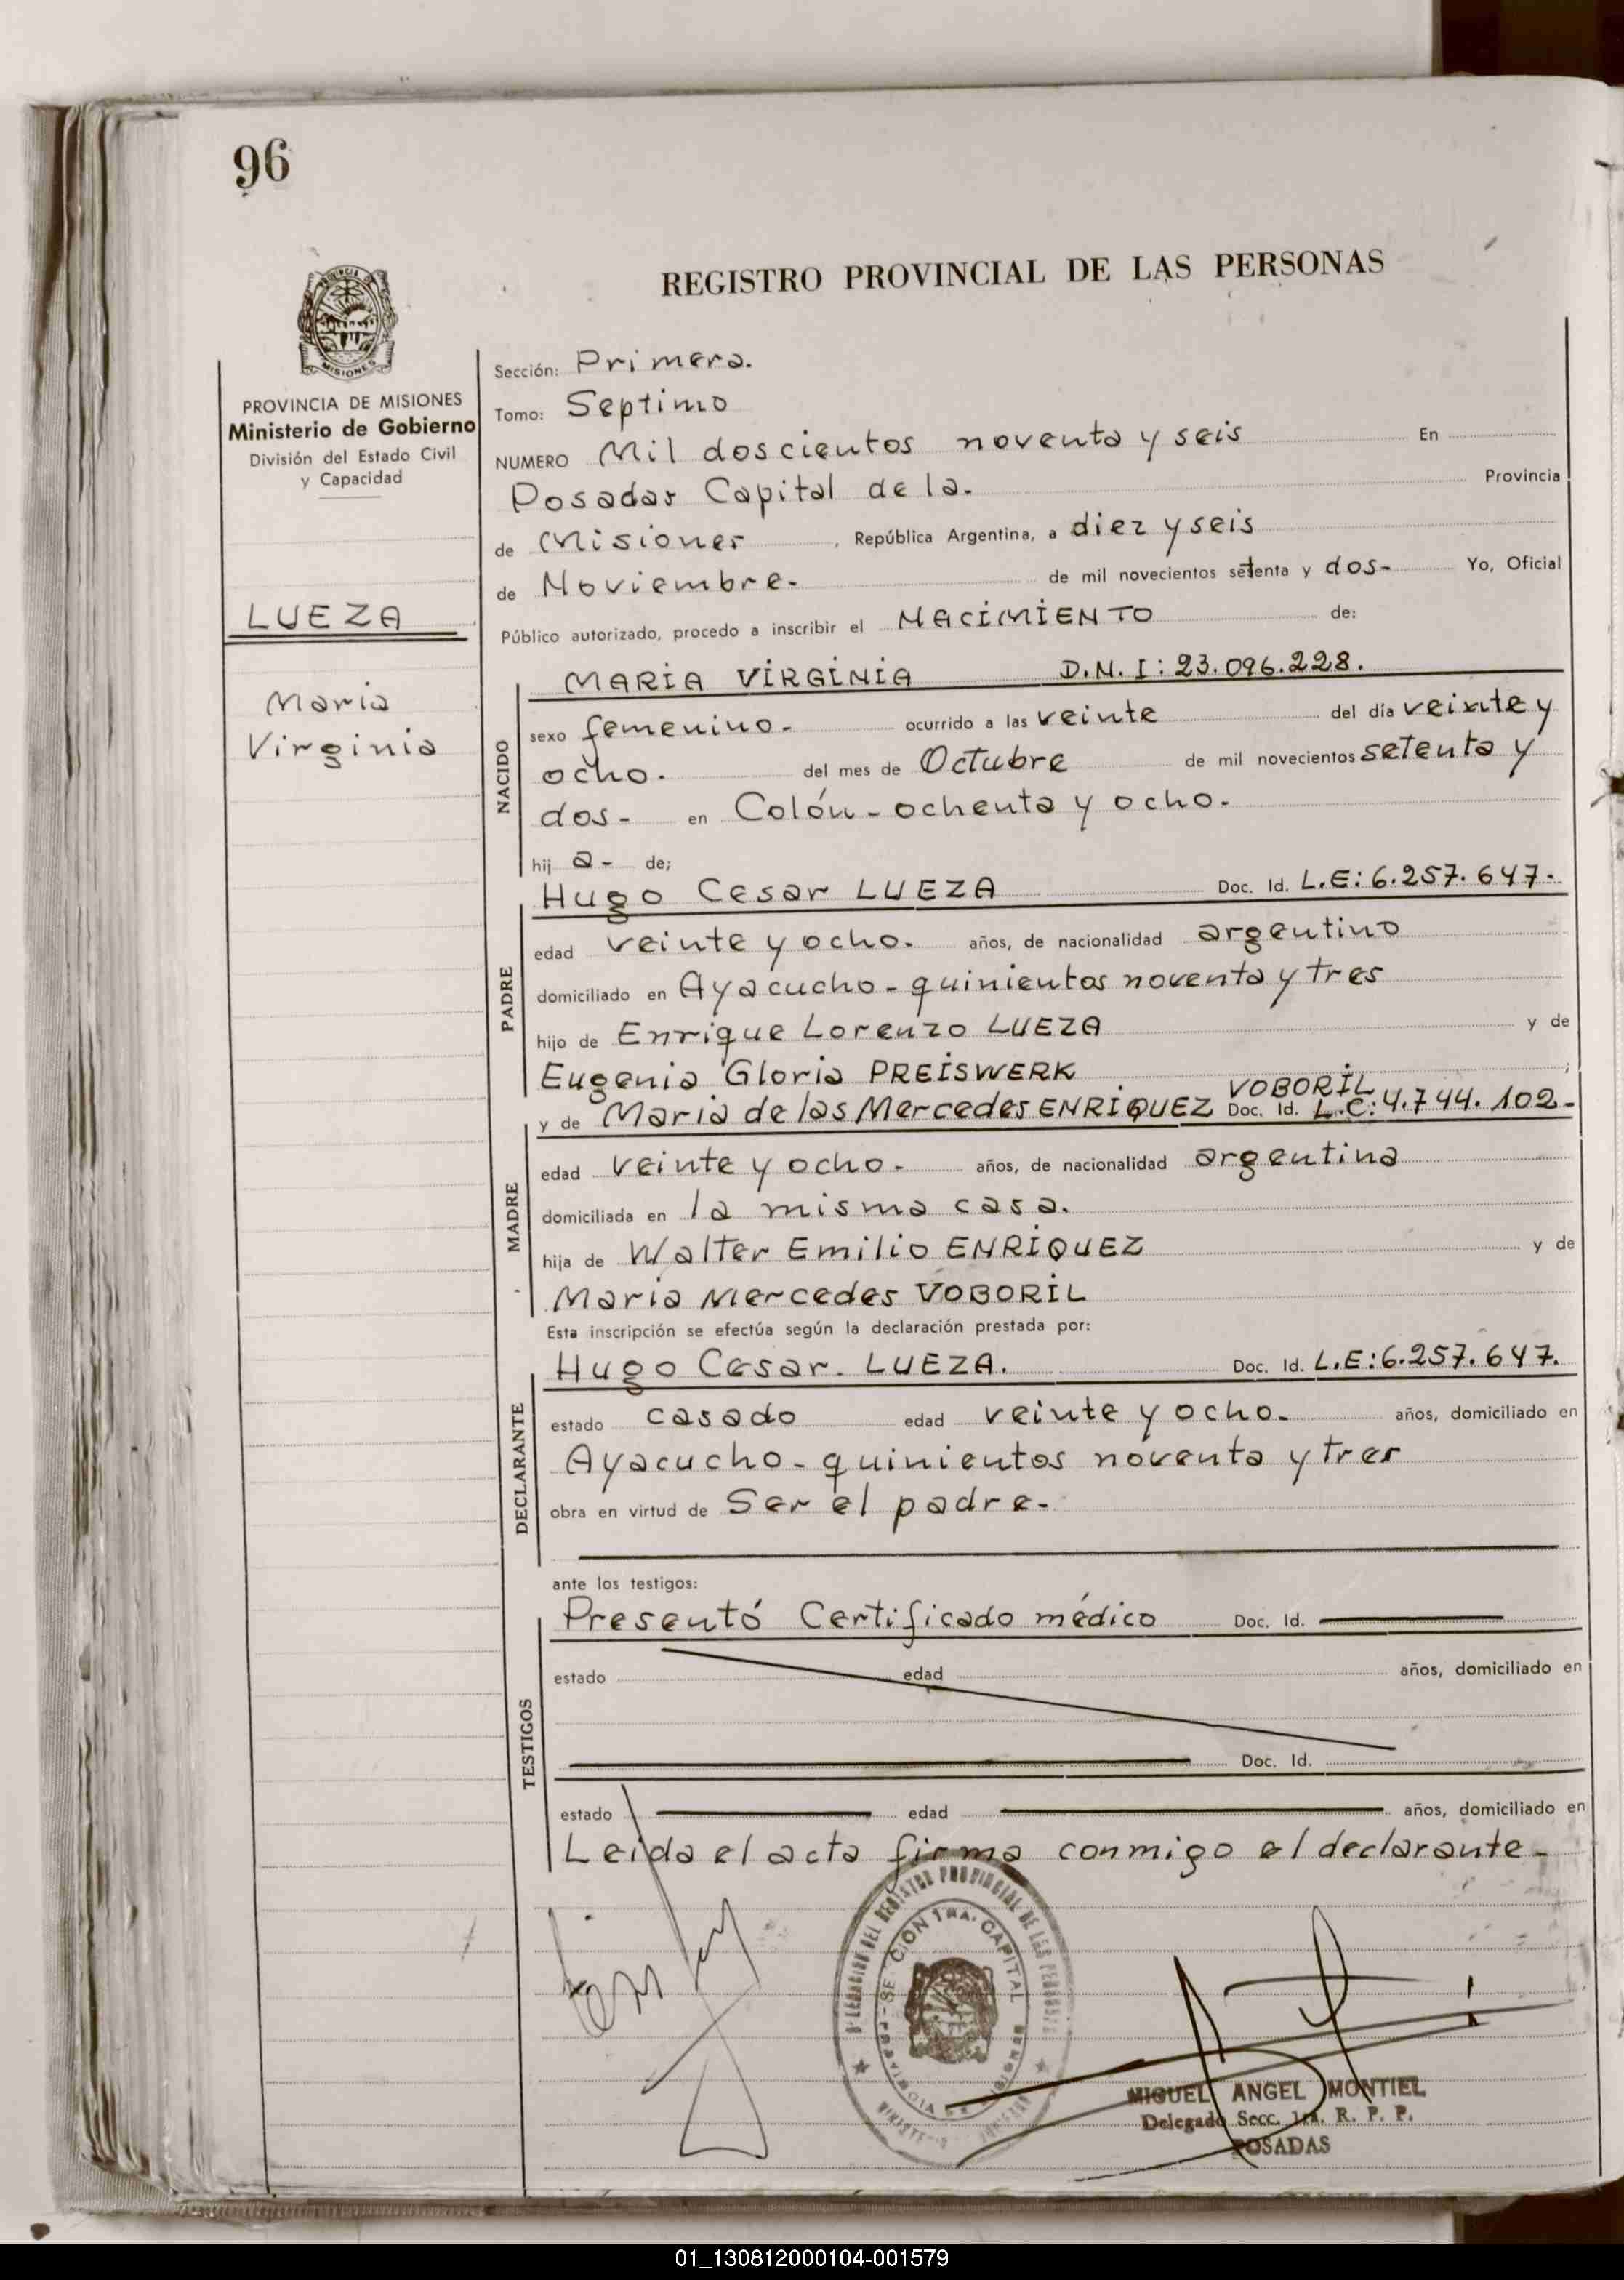 96
REGISTRO PROVINCIAL DE LAS PERSONAS
MISIONES
PROVINCIA DE MISIONES
Ministerio de Gobierno
División del Estado Civil
y Capacidad
LUEZA
Maria
Virginia
Sección: Primera.
Tomo: Septimo
NUMERO Mil doscientos noventa y seis En
Posadas Capital de la. Provincia
de Misiones, República Argentina, a diez y seis
de Noviembre- de mil novecientos setenta y dos- Yo, Oficial
Público autorizado, procedo a inscribir el NACIMIENTO de:
NACIDO
MARIA VIRGINIA D.N.I: 23.096.228.
sexo femenino- ocurrido a las veinte del día veinte y
ocho. del mes de Octubre de mil novecientos setenta y
dos- en Colón-ochenta y ocho.
hij a- de;
PADRE
Hugo Cesar LUEZA Doc. Id. L.E: 6.257.647.
edad veinte y ocho. años, de nacionalidad argentino
domiciliado en Ayacucho-quinientos noventa y tres
hijo de Enrique Lorenzo LUEZA y de
Eugenia Gloria PREISWERK ;
MADRE
VOBORIL
y de Maria de las Mercedes ENRIQUEZ Doc. Id. L.C: 4.744.102-
edad veinte y ocho- años, de nacionalidad argentina
domiciliada en la misma casa.
hija de Walter Emilio ENRIQUEZ y de
Maria Mercedes VOBORIL
Esta inscripción se efectúa según la declaración prestada por:
DECLARANTE
Hugo Cesar. LUEZA. Doc. Id. L.E: 6.257.647.
estado casado edad veinte y ocho- años, domiciliado en
Ayacucho-quinientos noventa y tres
obra en virtud de Ser el padre-
ante los testigos:
TESTIGOS
Presentó Certificado médico Doc. Id.
estado edad años, domiciliado en
Doc. Id.
estado edad años, domiciliado en
Leida el acta firma conmigo el declarante-
DEL REGISTRO PROVINCIAL DE LAS PERSONAS
SECCION 1RA. CAPITAL
MIGUEL ANGEL MONTIEL
Delegado Secc. 1ra. R. P. P.
POSADAS
01_130812000104-001579